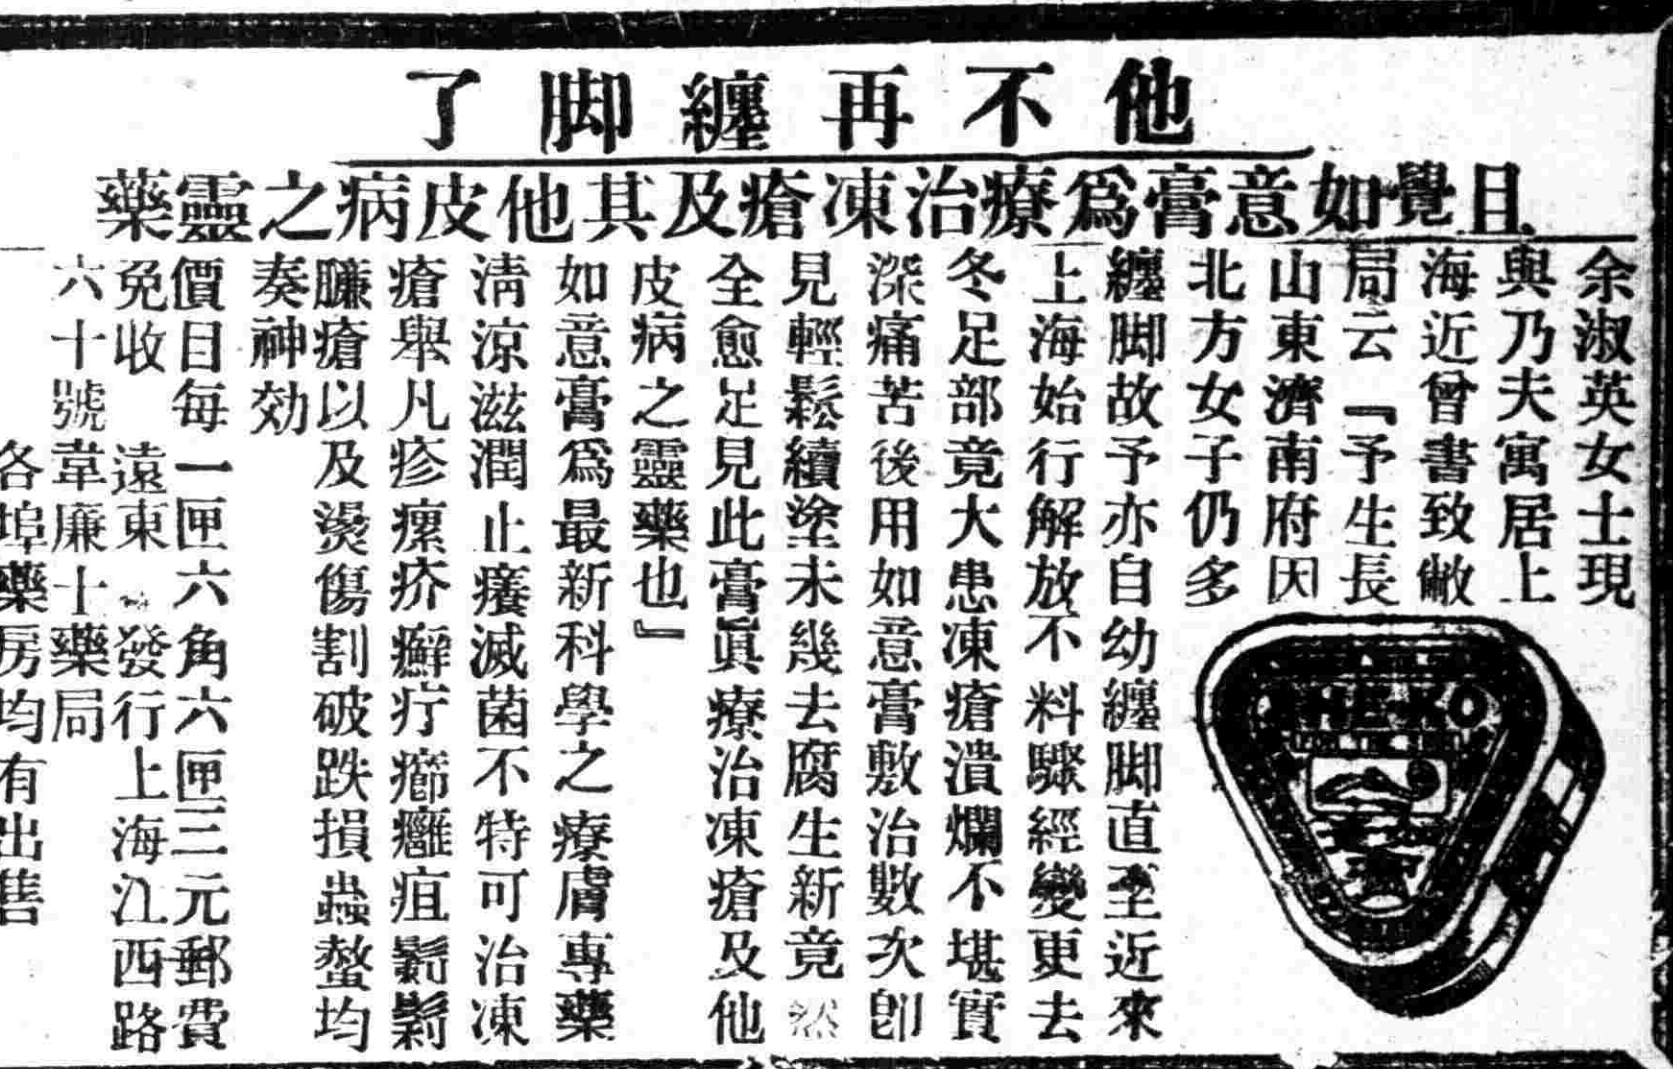 他不再纏脚了
且覺如意膏爲療治凍瘡及其他皮病之靈藥
余淑英女士現
與乃夫寓居上
海近曾書致敝
局云『予生長
山東濟南府因
北方女子仍多
纏脚故予亦自幼纏脚直至近來
上海始行解放不料驟經變更去
冬足部竟大患凍瘡潰爛不堪實
深痛苦後用如意膏敷治數次卽
見輕鬆續塗未幾去腐生新竟然
全愈足見此膏眞療治凍瘡及他
皮病之靈藥也』
如意膏爲最新科學之療膚專藥
淸涼滋潤止癢滅菌不特可治凍
瘡舉凡疹瘰疥癬疔癤癰疽
臁瘡以及燙傷割破跌損蟲螫均
奏神効
價目每一匣六角六匣三元郵費
免收 遠東發行上海江西路
六十號韋廉士藥局
各埠藥房均有出售
HE-KO